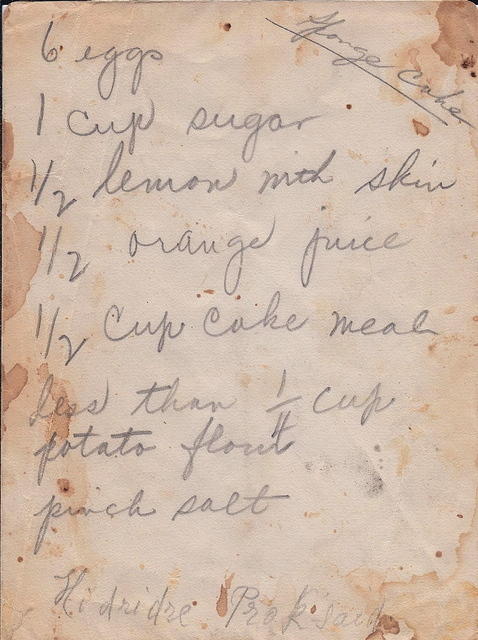 Sponge Cake
6 eggs
1 cup sugar
1/2 lemon with skin
1/2 orange juice
1/2 cup cake meal
less than 1/4 cup
potato flour
pinch salt